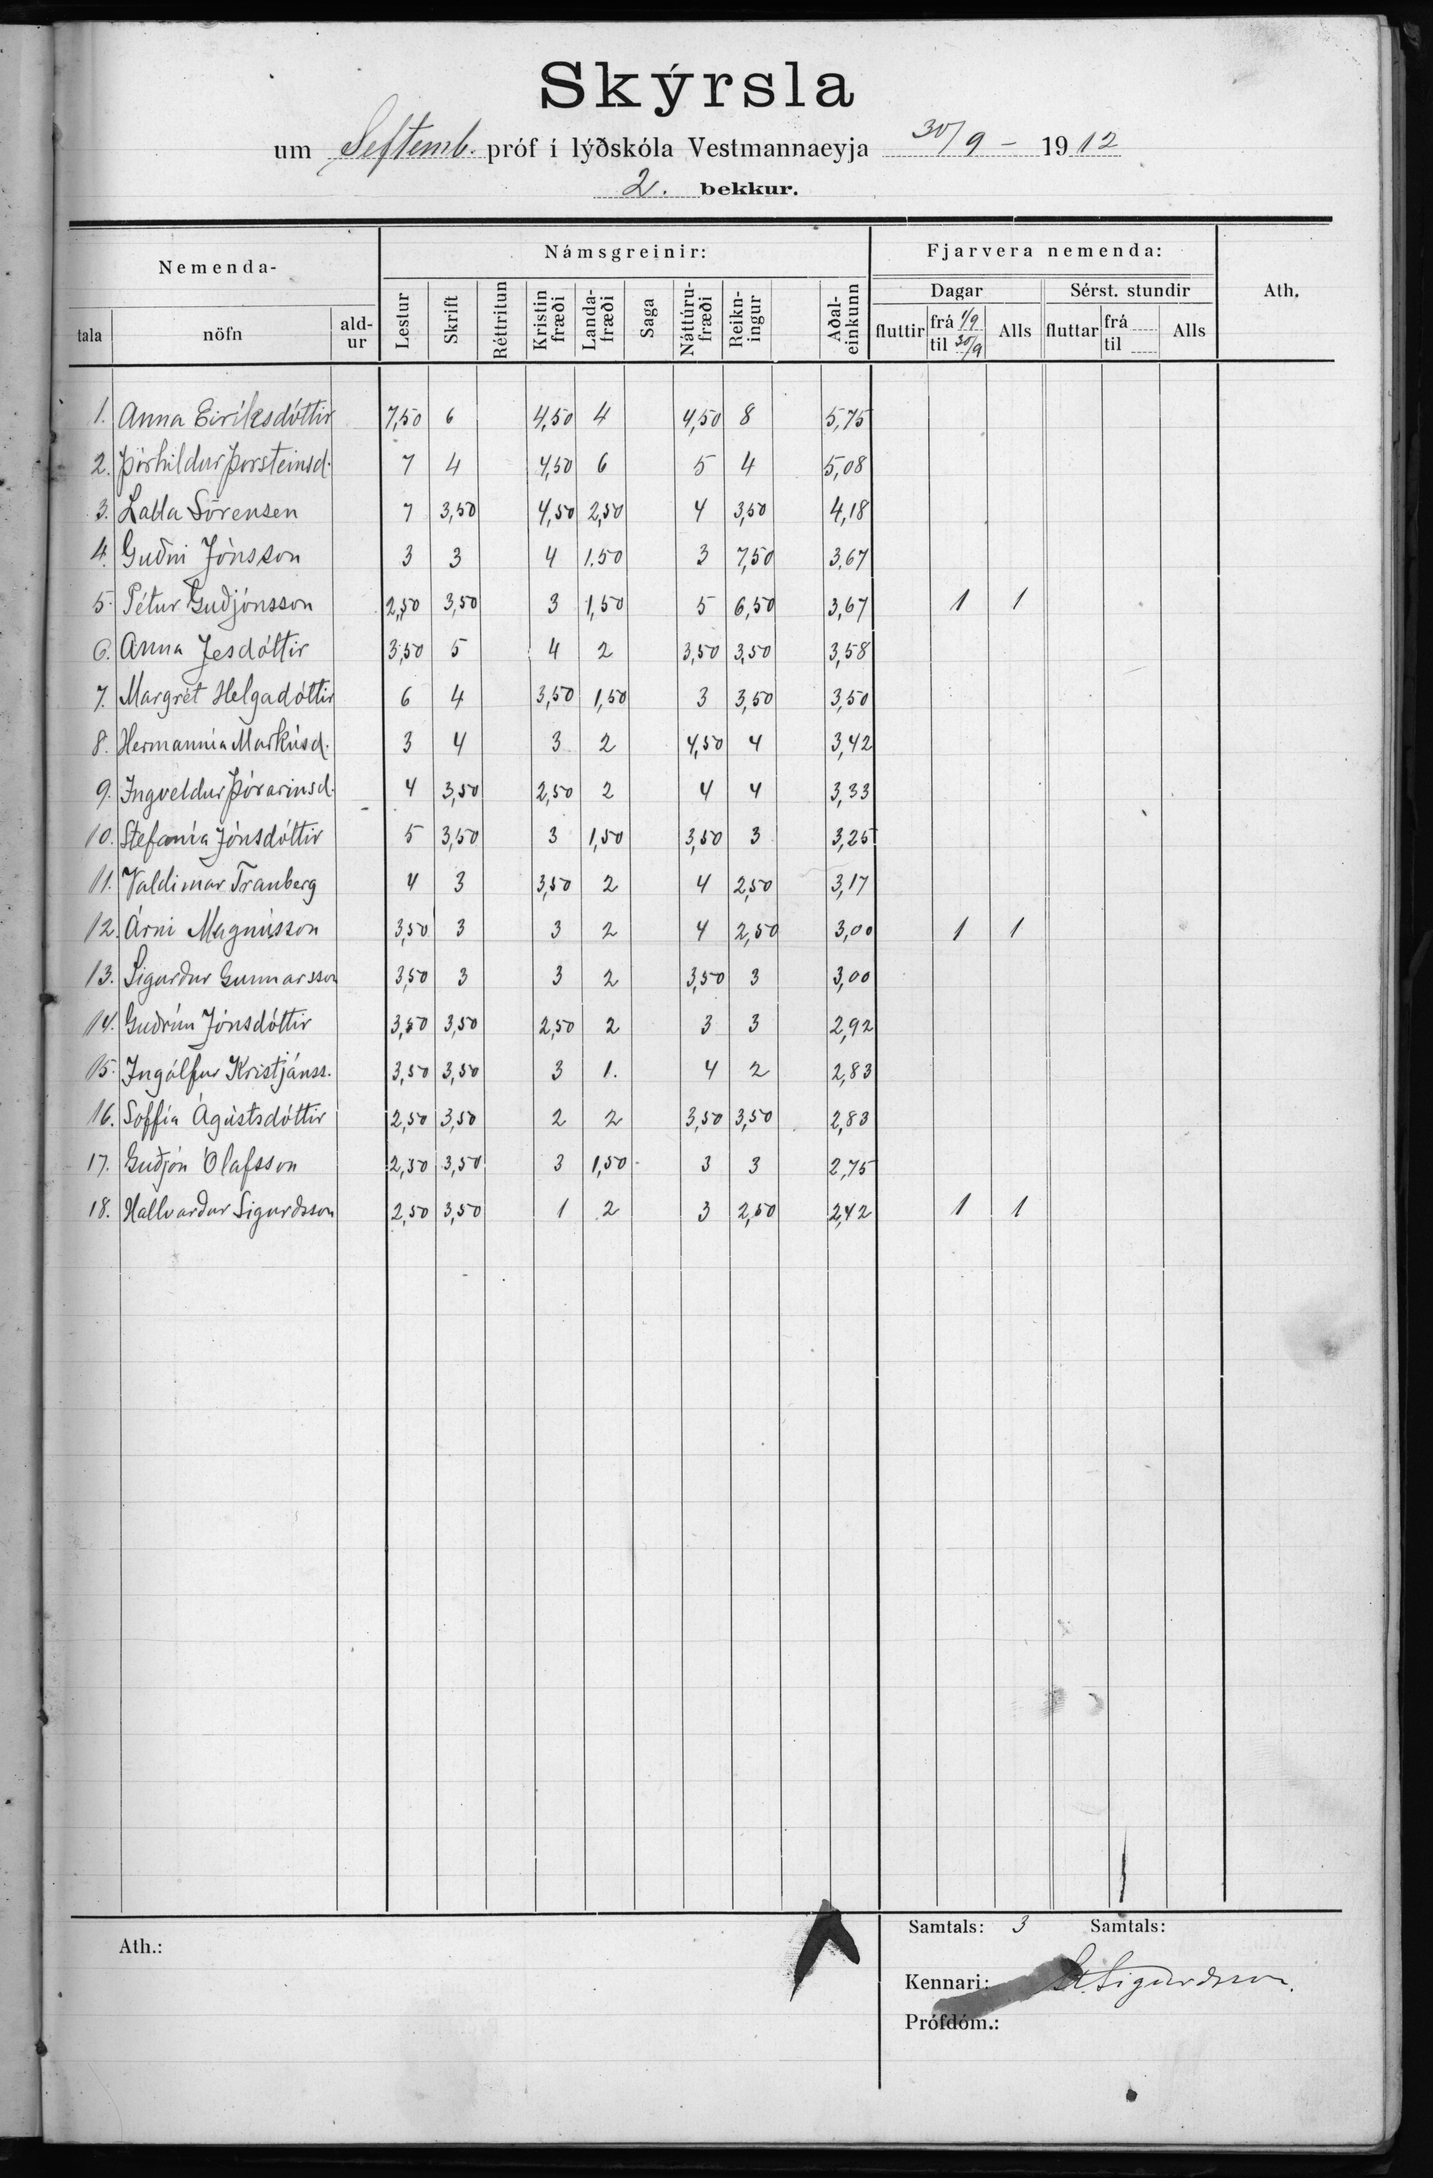 Skýrsla
um Septemb. próf í lýðskóla Vestmannaeyja 30/9 - 1912
2. bekkur.
Nemenda- Námsgreinir: Fjarvera nemenda: Ath.
Dagar Sérst. stundir
tala nöfn ald-ur Lestur Skrift Réttritun Kristin fræði Landa-fræði Saga Náttúru-fræði Reikn-ingur Aðal-einkunn fluttir frá 1/9 til 30/9 Alls fluttar frá til Alls
1. Anna Eiríksdóttir 7,50 6 4,50 4 4,50 8 5,75
2. Þórhildur Þorsteinsd. 7 4 4,50 6 5 4 5,08
3. Lalla Sörensen 7 3,50 4,50 2,50 4 3,50 4,18
4. Guðni Jónsson 3 3 4 1.50 3 7,50 3,67
5. Pétur Guðjónsson 2,50 3,50 3 1,50 5 6,50 3,67 1 1
6. Anna Jesdóttir 3,50 5 4 2 3,50 3,50 3,58
7. Margrét Helgadóttir 6 4 3,50 1,50 3 3,50 3,50
8. Hermannía Markúsd. 3 4 3 2 4,50 4 3,42
9. Ingveldur Þórarinsd. 4 3,50 2,50 2 4 4 3,33
10. Stefanía Jónsdóttir 5 3,50 3 1,50 3,50 3 3,25
11. Valdimar Tranberg 4 3 3,50 2 4 2,50 3,17
12. Árni Magnússon 3,50 3 3 2 4 2,50 3,00 1 1
13. Sigurður Gunnarsson 3,50 3 3 2 3,50 3 3,00
14. Guðrún Jónsdóttir 3,50 3,50 2,50 2 3 3 2,92
15. Ingólfur Kristjánss. 3,50 3,50 3 1. 4 2 2,83
16. Soffía Ágústsdóttir 2,50 3,50 2 2 3,50 3,50 2,83
17. Guðjón Ólafsson 2,50 3,50 3 1,50 3 3 2,75
18. Hallvarður Sigurðsson 2,50 3,50 1 2 3 2,50 2,42 1 1
Samtals: 3 Samtals:
Ath.:
Kennari: St. Sigurðsson.
Prófdóm.: